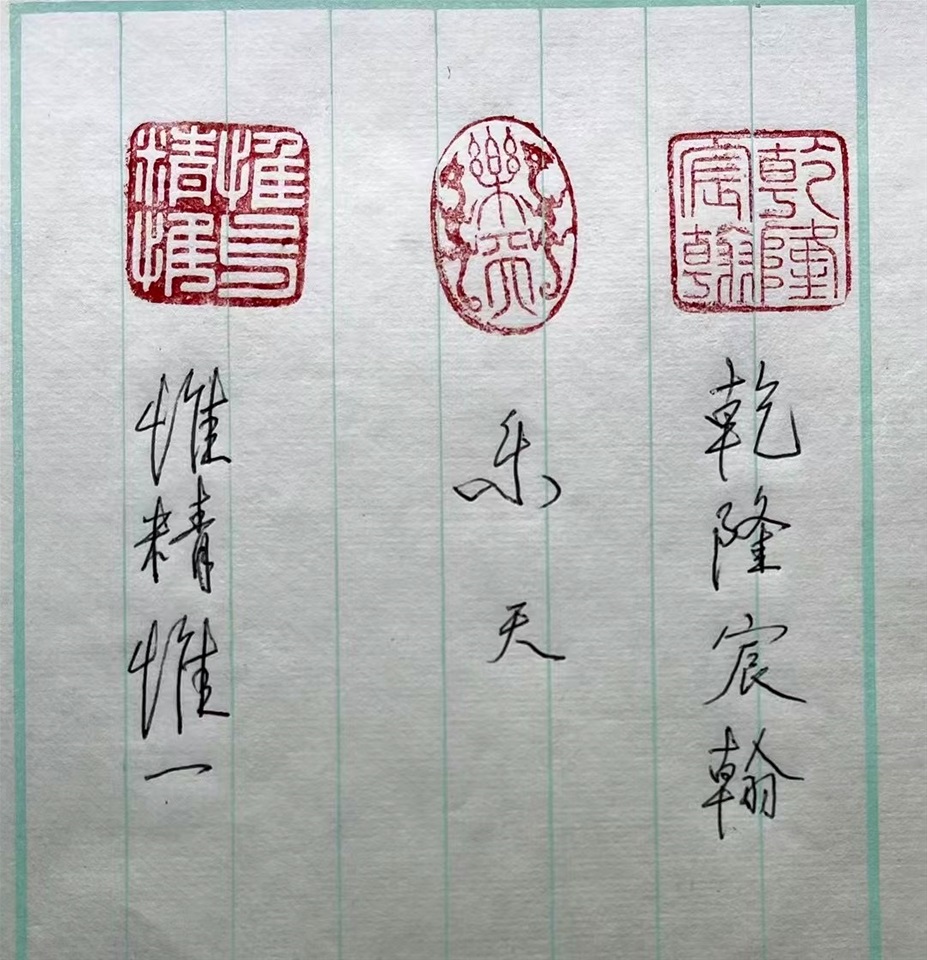 乾隆宸翰
樂天
惟精惟一
乾隆宸翰
乐天
惟精惟一